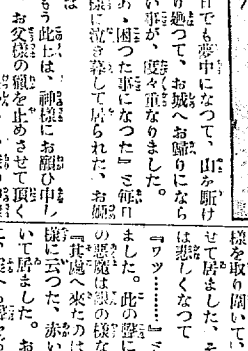 日でも夢中になつて、山を駈け
り廻つて、お城へお歸りになら
い事が、度々重なりました。
あゝ困つた事になつた』と毎日
様に泣き暮して居られた、お姫
は
もう此上は、神様にお願ひ申し
お父様の獵を止めさせて頂く
様を取り開いてい
せて居ました。そ
は悲しくなつて
『ワッ………』と
ました。此の聲に
の惡魔は銀の様な
『其處へ來たのは
様に云つた、赤い
いて居ました。お